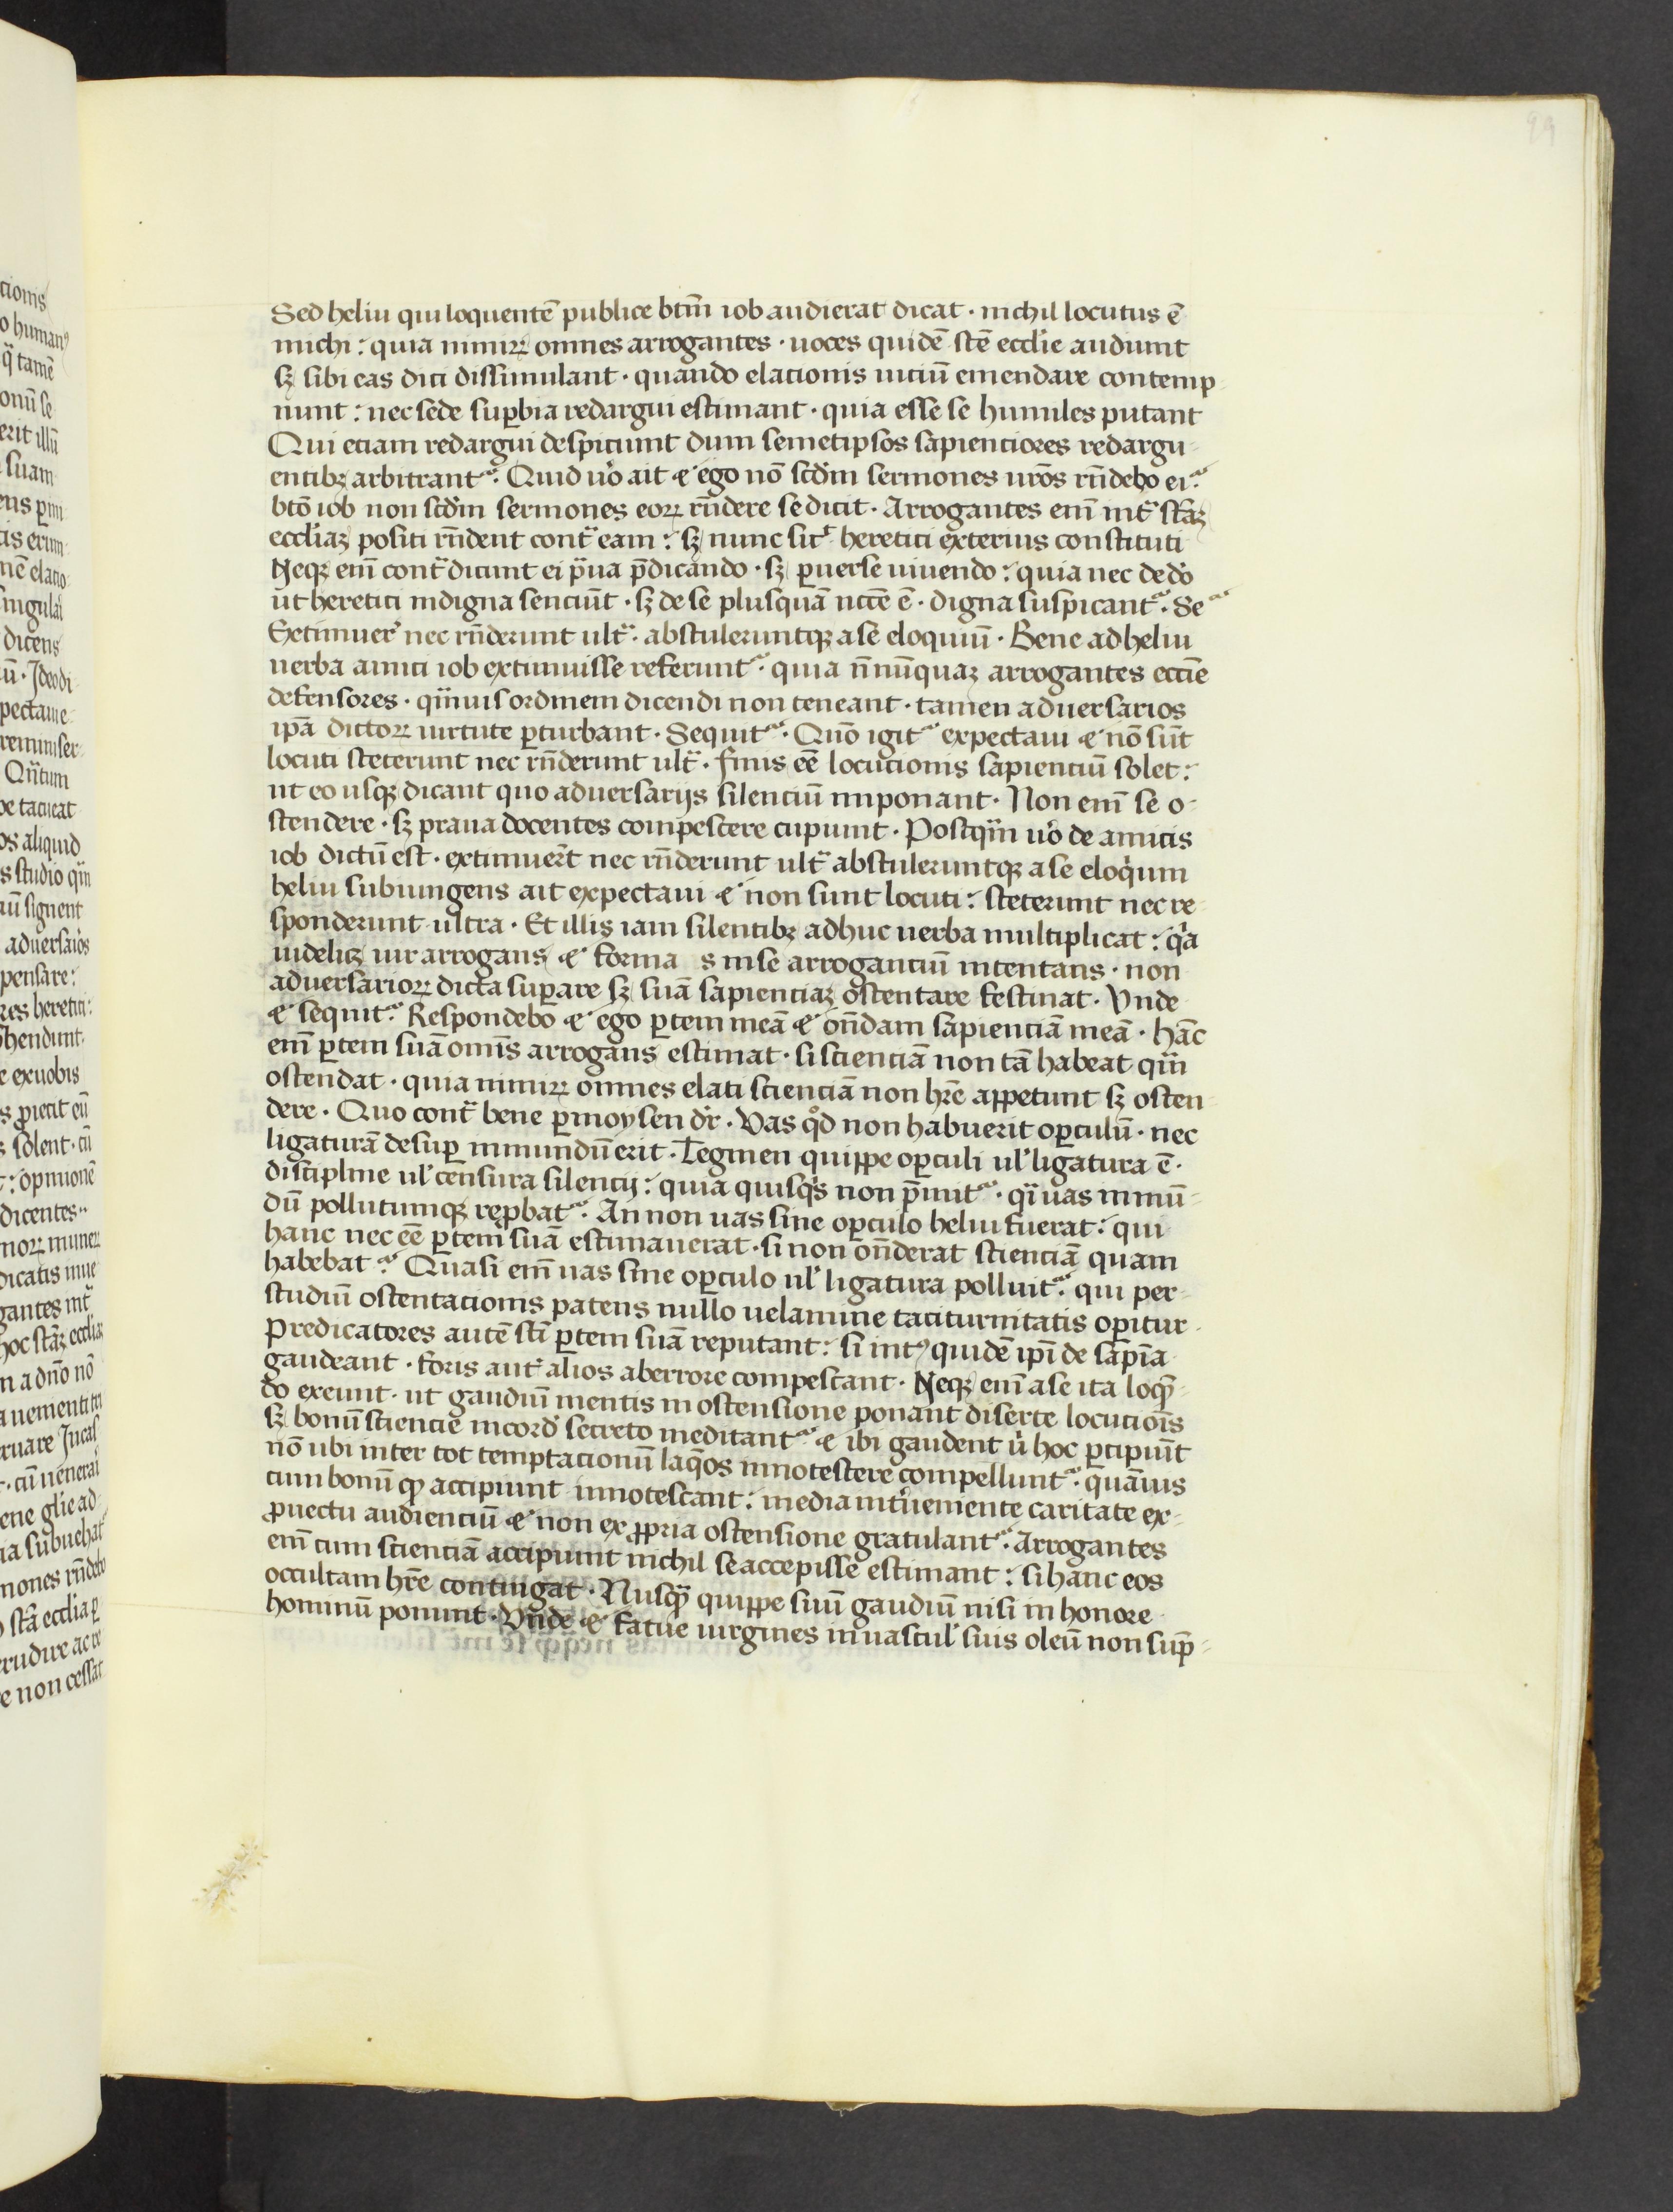 Sed heliu qui loquentē publice btm̄ iob audierat dicat · nichil locutus ē
michi : quia nimiꝝ omnes arrogantes · uoces quidē stē ecclīe audiunt
sꝫ sibi eas dici dissimulant · quando elacionis uiciū emendare contemp-
nunt : nec se de suꝑbia redargui estimant · quia esse se humiles putant
Qui eciam redargui despiciunt dum semetipsos sapienciores redargu-
entibꝫ arbitrant᷑. Quid uo᷑ ait ⁊ ego nō scdm̄ sermones uros̄ rn̄debo ei.
btō iob non scdm̄ sermones eoꝝ rn̄dere se dicit · Arrogantes em̄ int᷑ stāꝫ
eccliaꝫ positi rn̄dent cont᷑ eam : sꝫ nunc sic᷑ heretici exterius constituti
Neqꝫ em̄ cont᷑dicunt ei p᷑ua p̄dicando · sꝫ ꝑuerse uiuendo : quia nec de do᷑
ut heretici indigna senciūt · sꝫ de se plusquā nccē ē · digna suspicant᷑. Se
Extimuer᷑ nec rn̄derunt ult᷑ · abstuleruntqꝫ a se eloquiū · Bene ad heliu
uerba amici iob extimuisse referunt᷑ · quia n̄nūquaꝫ arrogantes eccīe
defensores · qm̄uis ordinem dicendi non teneant · tamen aduersarios
ip̄a dictoꝝ uirtute ꝑturbant · Sequit᷑ · Quō igit᷑ expectaui ⁊ nō sūt
locuti steterunt nec rn̄derunt ult᷑ · finis eē locucionis sapienciū solet :
ut eo usqꝫ dicant quo aduersarijs silenciū imponant · Non em̄ se o-
stendere · sꝫ praua docentes compescere cupiunt · Postqm̄ uo᷑ de amicis
iob dictū est · extimuer᷑t nec rn̄derunt ult᷑ abstuleruntqꝫ a se eloqium
heliu subiungens ait expectaui ⁊ non sunt locuti : steterunt nec re-
sponderunt ultra · Et illis iam silentibꝫ adhuc uerba multiplicat : qa
uidelicꝫ uir arrogans ⁊ forma s in se arroganciū intentans · non
aduersarioꝝ dicta suꝑare sꝫ suā sapienciaꝫ ostentare festinat · Vnde
⁊ sequit᷑. Respondebo ⁊ ego ꝑtem meā ⁊ on̄dam sapienciā meā · hāc
em̄ ꝑtem suā omīs arrogans estimat · si scienciā non tā habeat qm̄
ostendat · quia nimiꝝ omnes elati scienciā non hrē appetunt sꝫ osten-
dere · Quo cont᷑ bene ꝑ moysen dr᷑ · Vas qod non habuerit oꝑculū · nec
ligaturā desuꝑ inmundū erit · Tegmen quippe oꝑculi ul᷑ ligatura ē ·
discipline ul᷑ censura silencij : quia quisqis non p̄mit᷑ · qi uas inmū-
dū pollutumqꝫ reꝓbat᷑. An non uas sine oꝑculo heliu fuerat : qui
hanc nec eē ꝑtem suā estimauerat · si non on̄derat scienciā quam
habebat᷑. Quasi em̄ uas sine oꝑculo ul᷑ ligatura polluit᷑. qui per
studiū ostentacionis patens nullo uelamine taciturnitatis oꝑitur
Predicatores autē stī ꝑtem suā reputant : si intꝰ quidē ip̄i de sap̄īa
gaudeant · foris aut᷑ alios ab errore compescant · Neqꝫ em̄ a se ita loq̄-
do exeunt · ut gaudiū mentis in ostensione ponant diserte locucioīs
sꝫ bonū sciencie in cord᷑ secreto meditant᷑ ⁊ ibi gaudent ui hoc ꝑcipiūt
nō ubi inter tot temptacionū laq̄os innotescere compellunt᷑. quāuis
cum bonū qꝫ accipiunt innotescant : media int᷑ueniente caritate ex
ꝓuectu audienciū ⁊ non ex ꝓpria ostensione gratulant᷑. Arrogantes
em̄ cum scienciā accipiunt nichil se accepisse estimant : si hanc eos
occultam hrē contingat · Nusq̄ quippe suū gaudiū nisi in honore
hominū ponunt · Vnde ⁊ fatue uirgines in uascul᷑ suis oleū non sup̄-